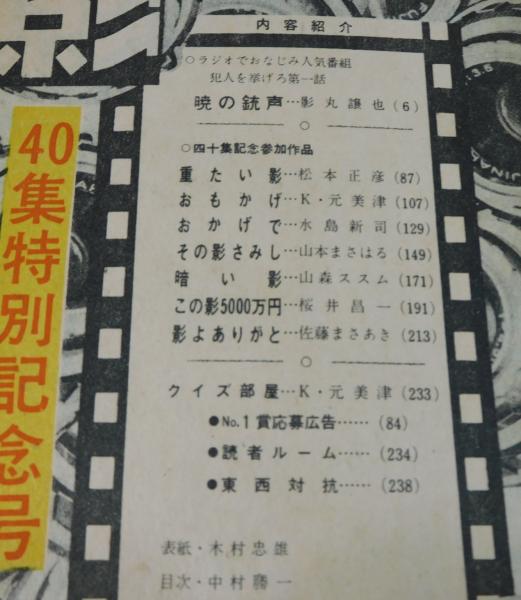 影
40集特別記念号
内容紹介
○ラジオでおなじみ人気番組
犯人を挙げろ第一話
暁の銃声…影丸譲也(6)
○四十集記念参加作品
重たい影…松本正彦(87)
おもかげ…K・元美津(107)
おかげで…水島新司(129)
その影さみし…山本まさはる(149)
暗い影…山森ススム(171)
この影5000万円…桜井昌一(191)
影よありがと…佐藤まさあき(213)
クイズ部屋…K・元美津(233)
●No.1賞応募広告……(84)
●読者ルーム……(234)
●東西対抗……(238)
表紙・木村忠雄
目次・中村勝一